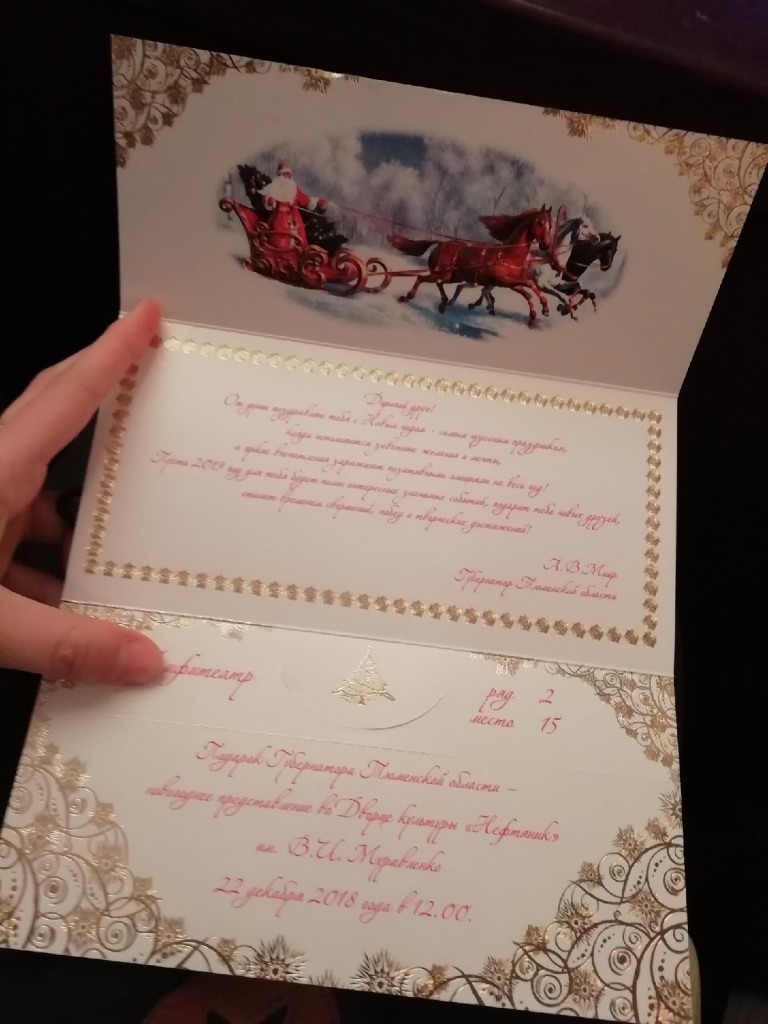 Дорогой друг!
От души поздравляю тебя с Новым годом - самым чудесным праздником,
когда исполняются заветные желания и мечты,
а яркие впечатления заряжают позитивными эмоциями на весь год!
Пусть 2019 год для тебя будет полон интересных значимых событий, подарит тебе новых друзей,
станет временем свершений, побед и творческих достижений!
А.В.Моор
Губернатор Тюменской области
ряд 2
место 15
Подарок Губернатора Тюменской области –
новогоднее представление во Дворце культуры «Нефтяник»
им. В.И. Муравленко
22 декабря 2018 года в 12.00.